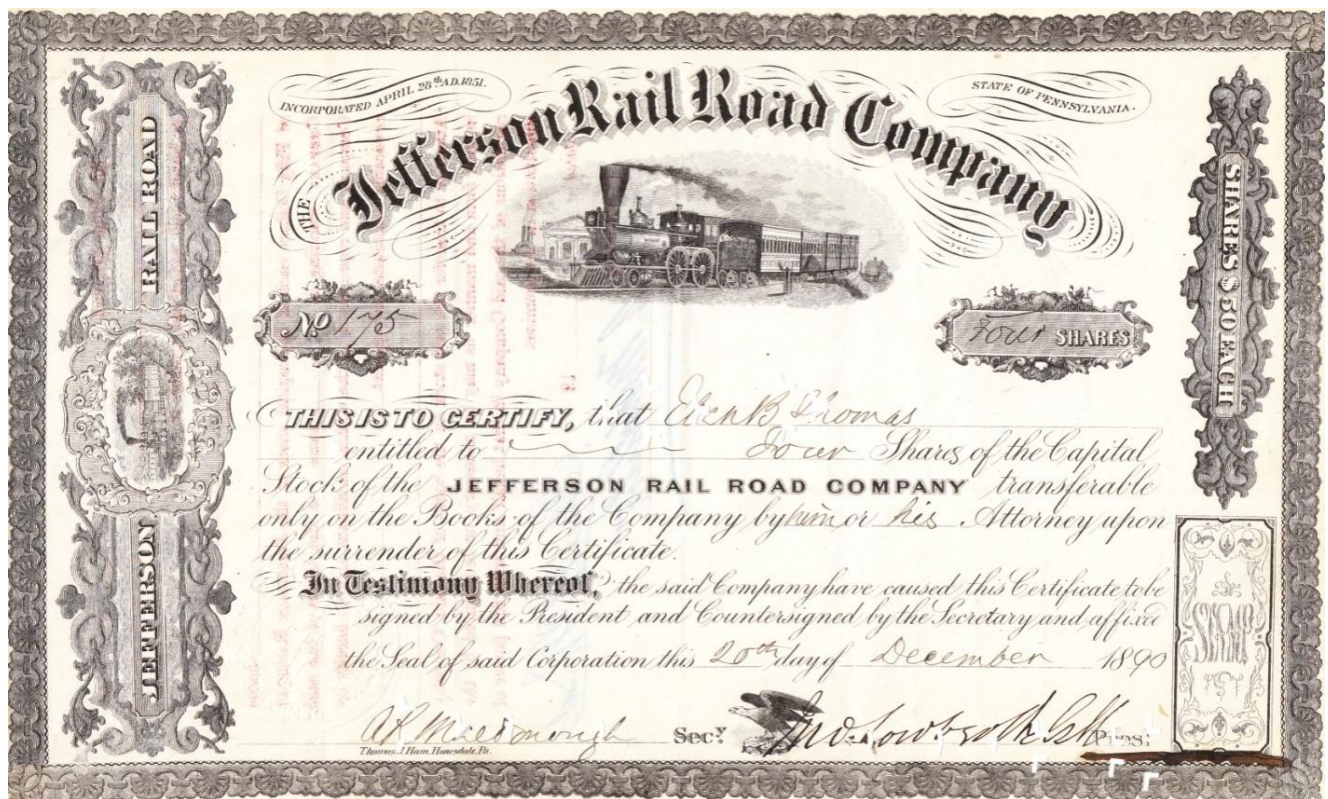 INCORPORATED APRIL 28th A.D. 1851.
STATE OF PENNSYLVANIA.
THE Jefferson Rail Road Company
JEFFERSON RAIL ROAD
SHARES $50 EACH
No 175
Four SHARES
THIS IS TO CERTIFY, that B Thomas
entitled to Four Shares of the Capital
Stock of the JEFFERSON RAIL ROAD COMPANY transferable
only on the Books of the Company by him or his Attorney upon
the surrender of this Certificate.
In Testimony Whereof, the said Company have caused this Certificate to be
signed by the President and Countersigned by the Secretary and affixed
the Seal of said Corporation this 20th day of December 1890
Secy.
Pres:
Thomas J. Ham, Honesdale, Pa.
STAMP